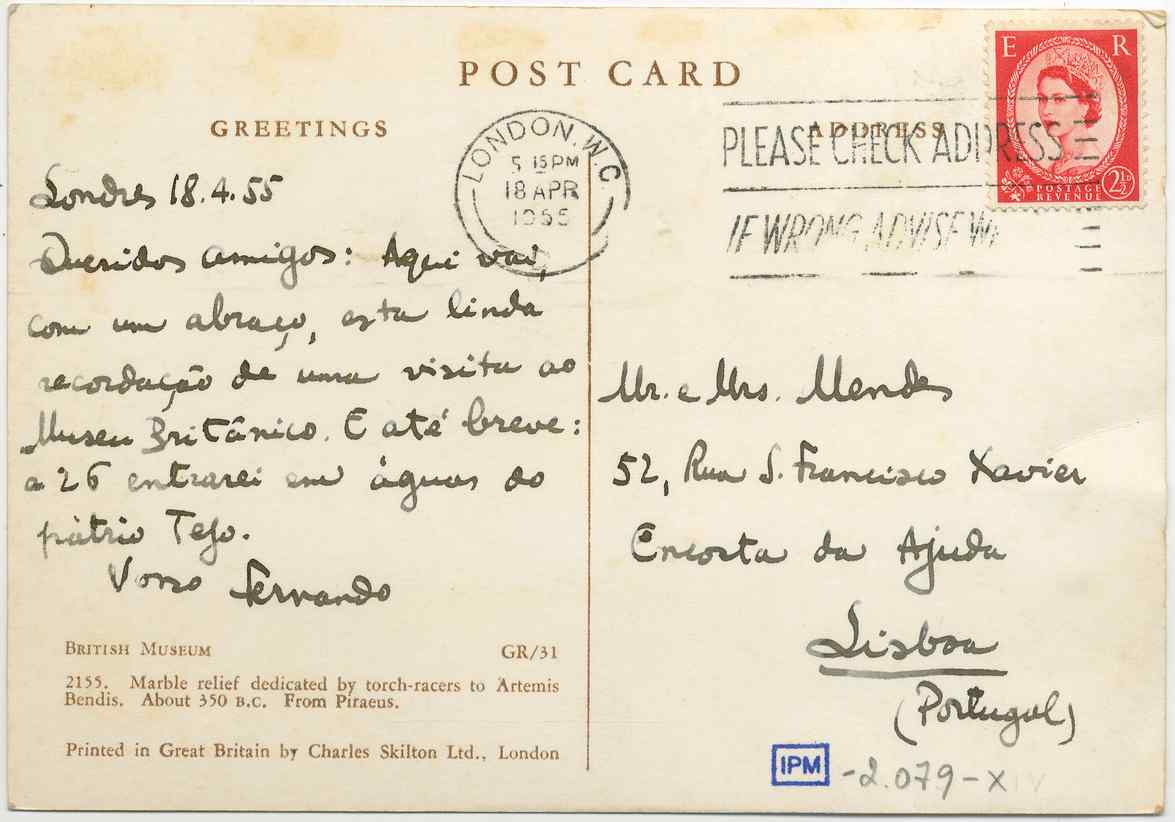 POST CARD
GREETINGS
ADDRESS
LONDON. W.C.
5 15 PM
18 APR
1955
PLEASE CHECK ADDRESS
IF WRONG ADVISE
E R
POSTAGE
REVENUE
2½D
Londres 18.4.55
Queridos amigos: Aqui vai,
com um abraço, esta linda
recordação de uma visita ao
Museu Britânico. E até breve:
a 26 entrarei em águas do
pátrio Tejo.
Vosso Fernando
Mr. e Mrs. Mendes
52, Rua S. Francisco Xavier
Encosta da Ajuda
Lisboa
(Portugal)
BRITISH MUSEUM GR/31
2155. Marble relief dedicated by torch-racers to Artemis
Bendis. About 350 B.C. From Piraeus.
Printed in Great Britain by Charles Skilton Ltd., London
IPM -2.079-XIV